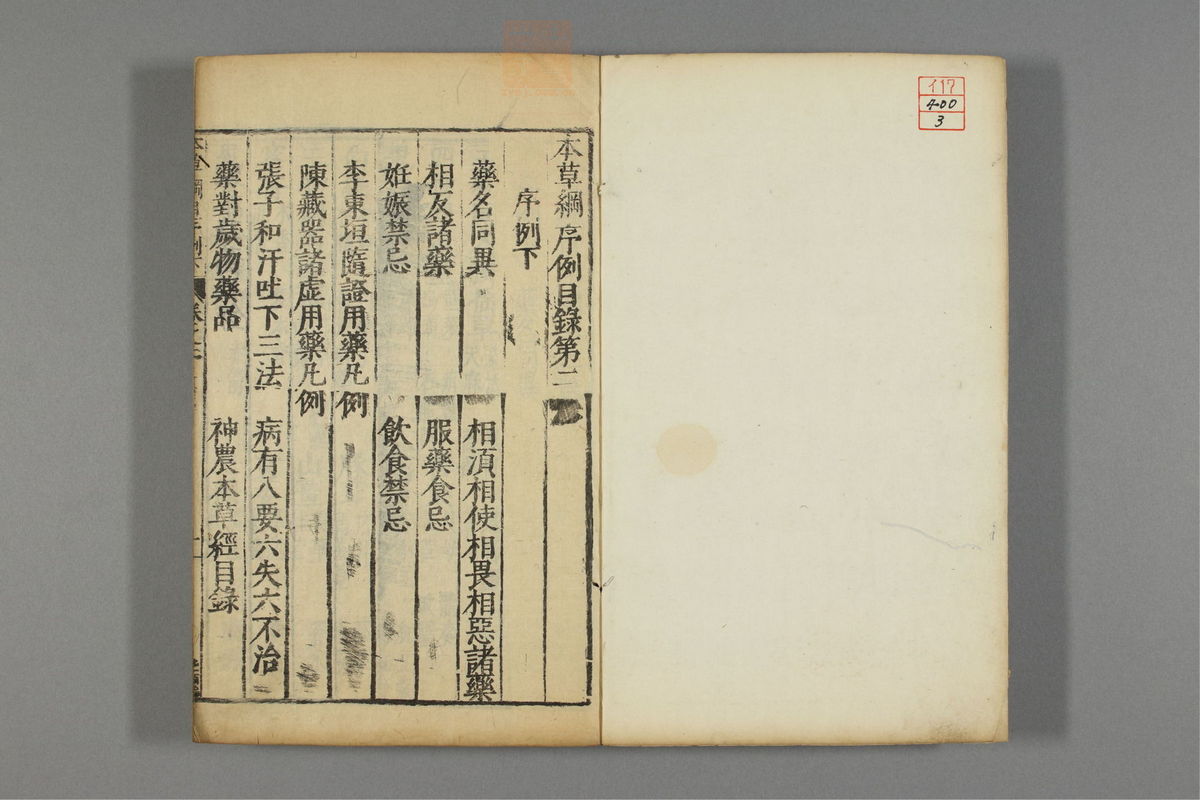 イ17
400
3
本草綱序例目錄第二
序例下
藥名同異 相湏相使相畏相惡諸藥
相反諸藥 服藥食忌
妊娠禁忌 飲食禁忌
李東垣隨證用藥凡例
陳藏器諸虛用藥凡例
張子和汗吐下三法 病有八要六失六不治
藥對歲物藥品 神農本草經目錄